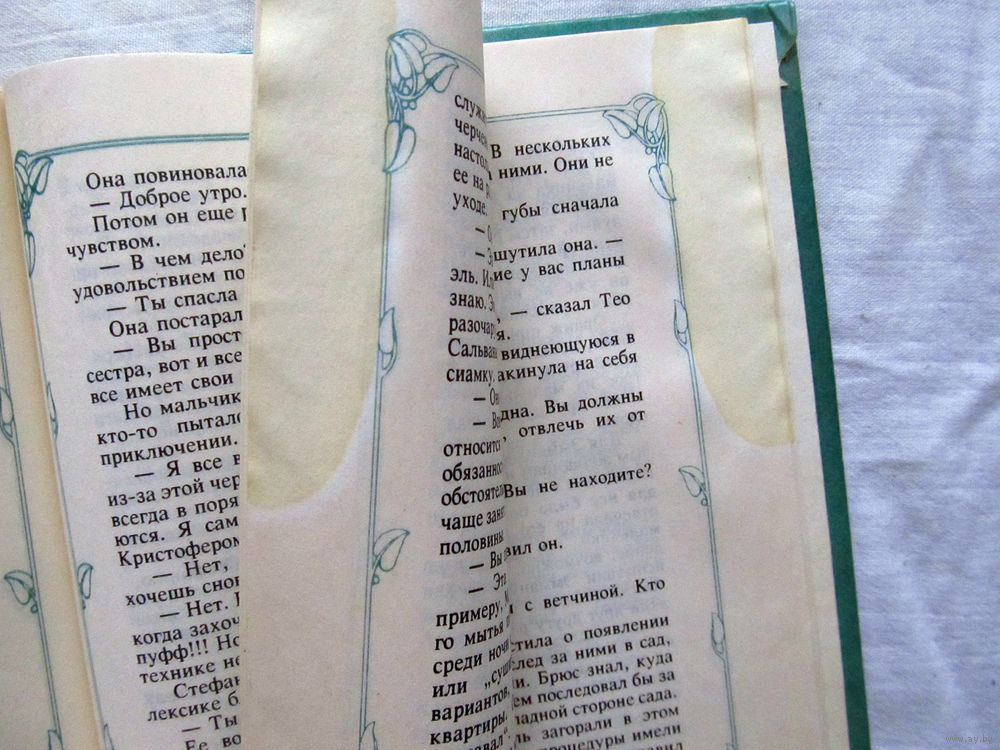 Она повиновала
— Доброе утро.
Потом он еще
чувством.
— В чем дело
удовольствием по
— Ты спасла
Она постарал
— Вы прост
сестра, вот и все
все имеет свои
Но мальчик
кто-то пытало
приключении.
— Я все в
из-за этой чер
всегда в поря
ются. Я сам
Кристофером
— Нет,
хочешь снов
— Нет.
когда захоч
пуфф!!! Но
технике не
Стефан
лексике б
— Ты
Ее во
служ
черче
насто
ее на
уходе.
—
—
эль. Ил
знаю. Э
разочар
Сальва
сиамку
— Он
—
относитс
обязаннос
обстоятел
чаще зан
половины
— Вы
— Эт
примеру,
го мытья
среди ночи
или „суш
вариантов,
квартиры.
В нескольких
ними. Они не
губы сначала
шутила она. —
ие у вас планы
, — сказал Тео
я.
виднеющуюся в
акинула на себя
дна. Вы должны
, отвлечь их от
Вы не находите?
вил он.
с ветчиной. Кто
стила о появлении
след за ними в сад,
и. Брюс знал, куда
ем последовал бы за
падной стороне сада.
ль загорали в этом
процедуры имели
www.ay.by